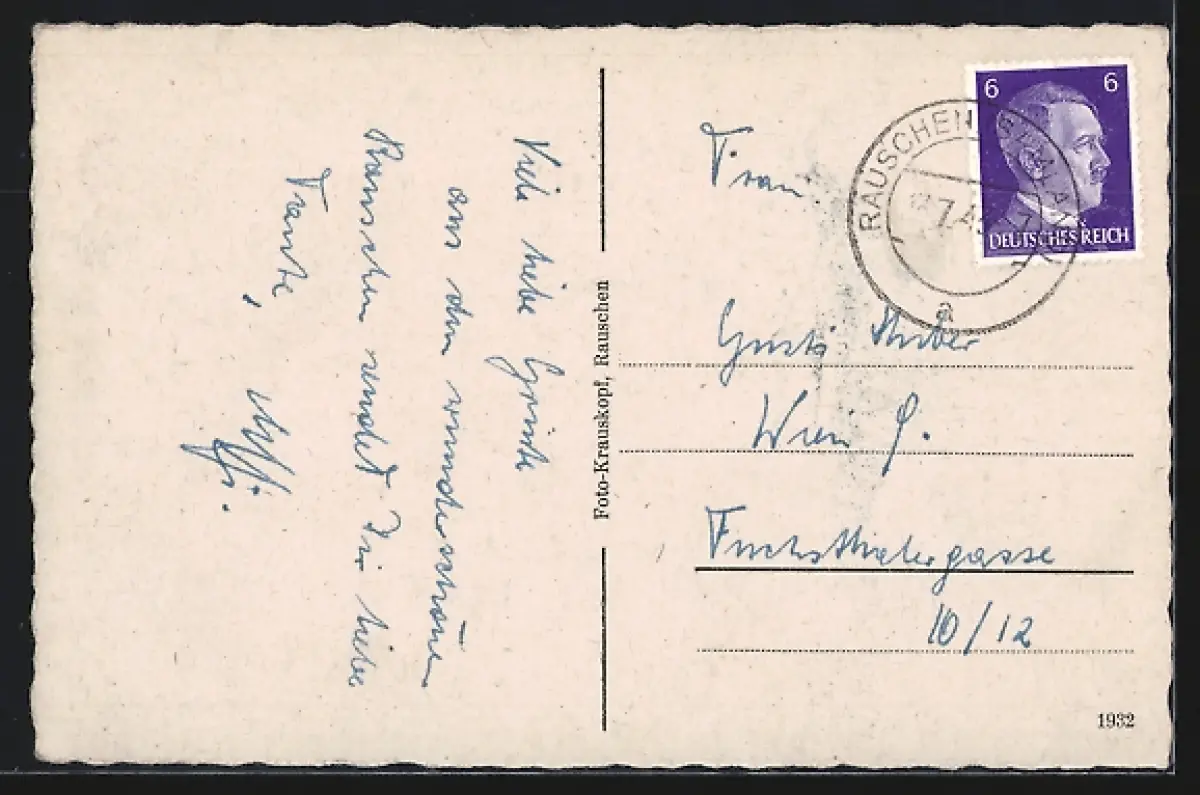 Viele liebe Grüsse
aus dem wunderschönen
Rauschen sendet Dir liebe
Traute,
Foto-Krauskopf, Rauschen
6 6
DEUTSCHES REICH
RAUSCHEN
7.4
a
Frau
Gusti Huber
Wien 9.
Fuchsthalergasse
10/12
1932